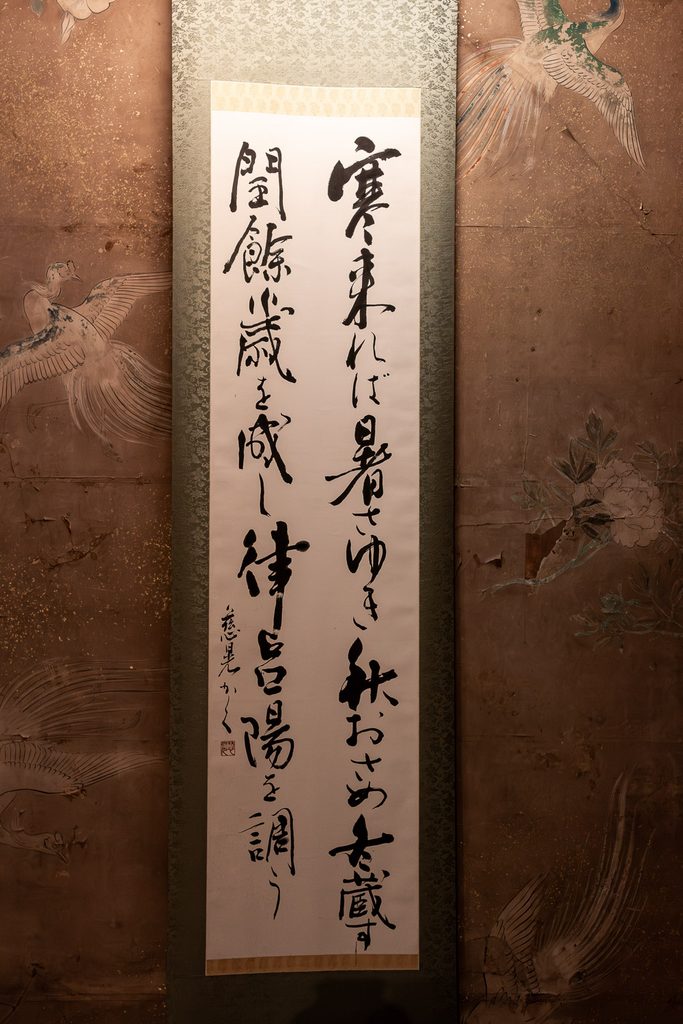 寒来れば暑さゆき秋おさめ冬蔵す
閏餘歳を成し律呂陽を調う
慈晃かく